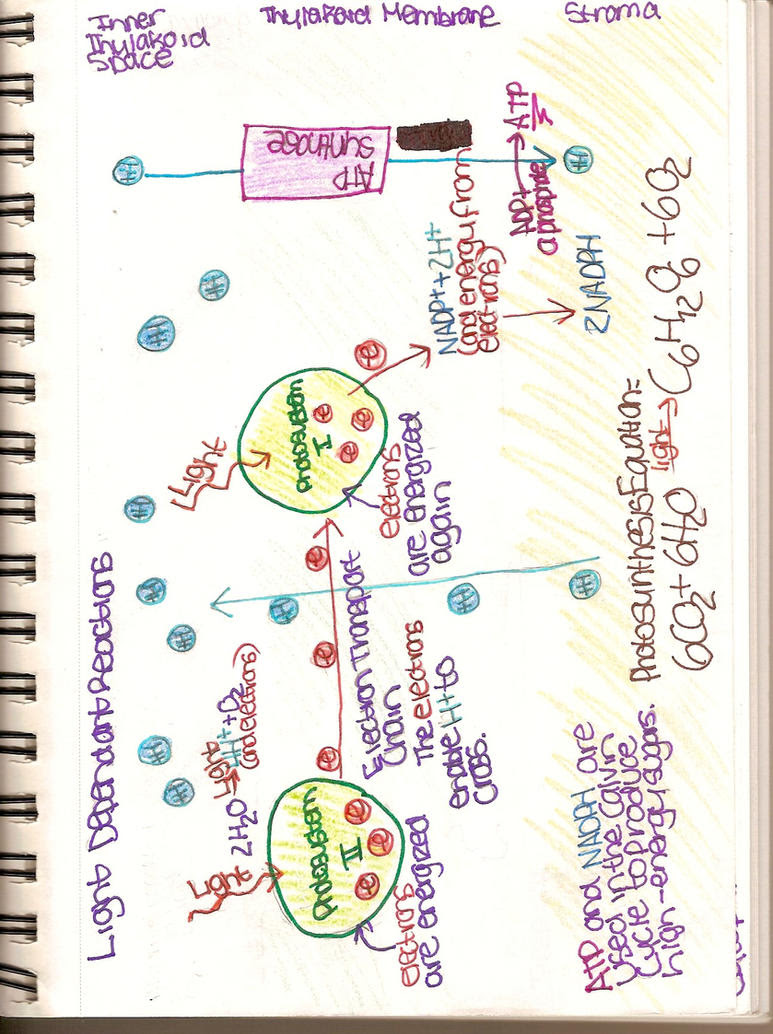 Light Dependant Reactions
Inner
Thylakoid
Space
Thylakoid Membrane
Stroma
Light
2H₂O Light→ 4H⁺ + O₂
(and electrons)
Photosystem
II
e e e
electrons
are energized
e e e
Electron Transport
Chain
The electrons
enable H+ to
cross.
H H H H H H H H H H H H
Light
Photosystem
I
e e e
electrons
are energized
again
e
NADP+ + 2H+
(and energy from
electrons)
2NADPH
ATP
synthase
ADP+
a phosphate
ATP
ATP and NADPH are
used in the Calvin
Cycle to produce
high-energy sugars.
Photosynthesis Equation=
6CO₂ + 6H₂O light→ C₆H₁₂O₆ + 6O₂